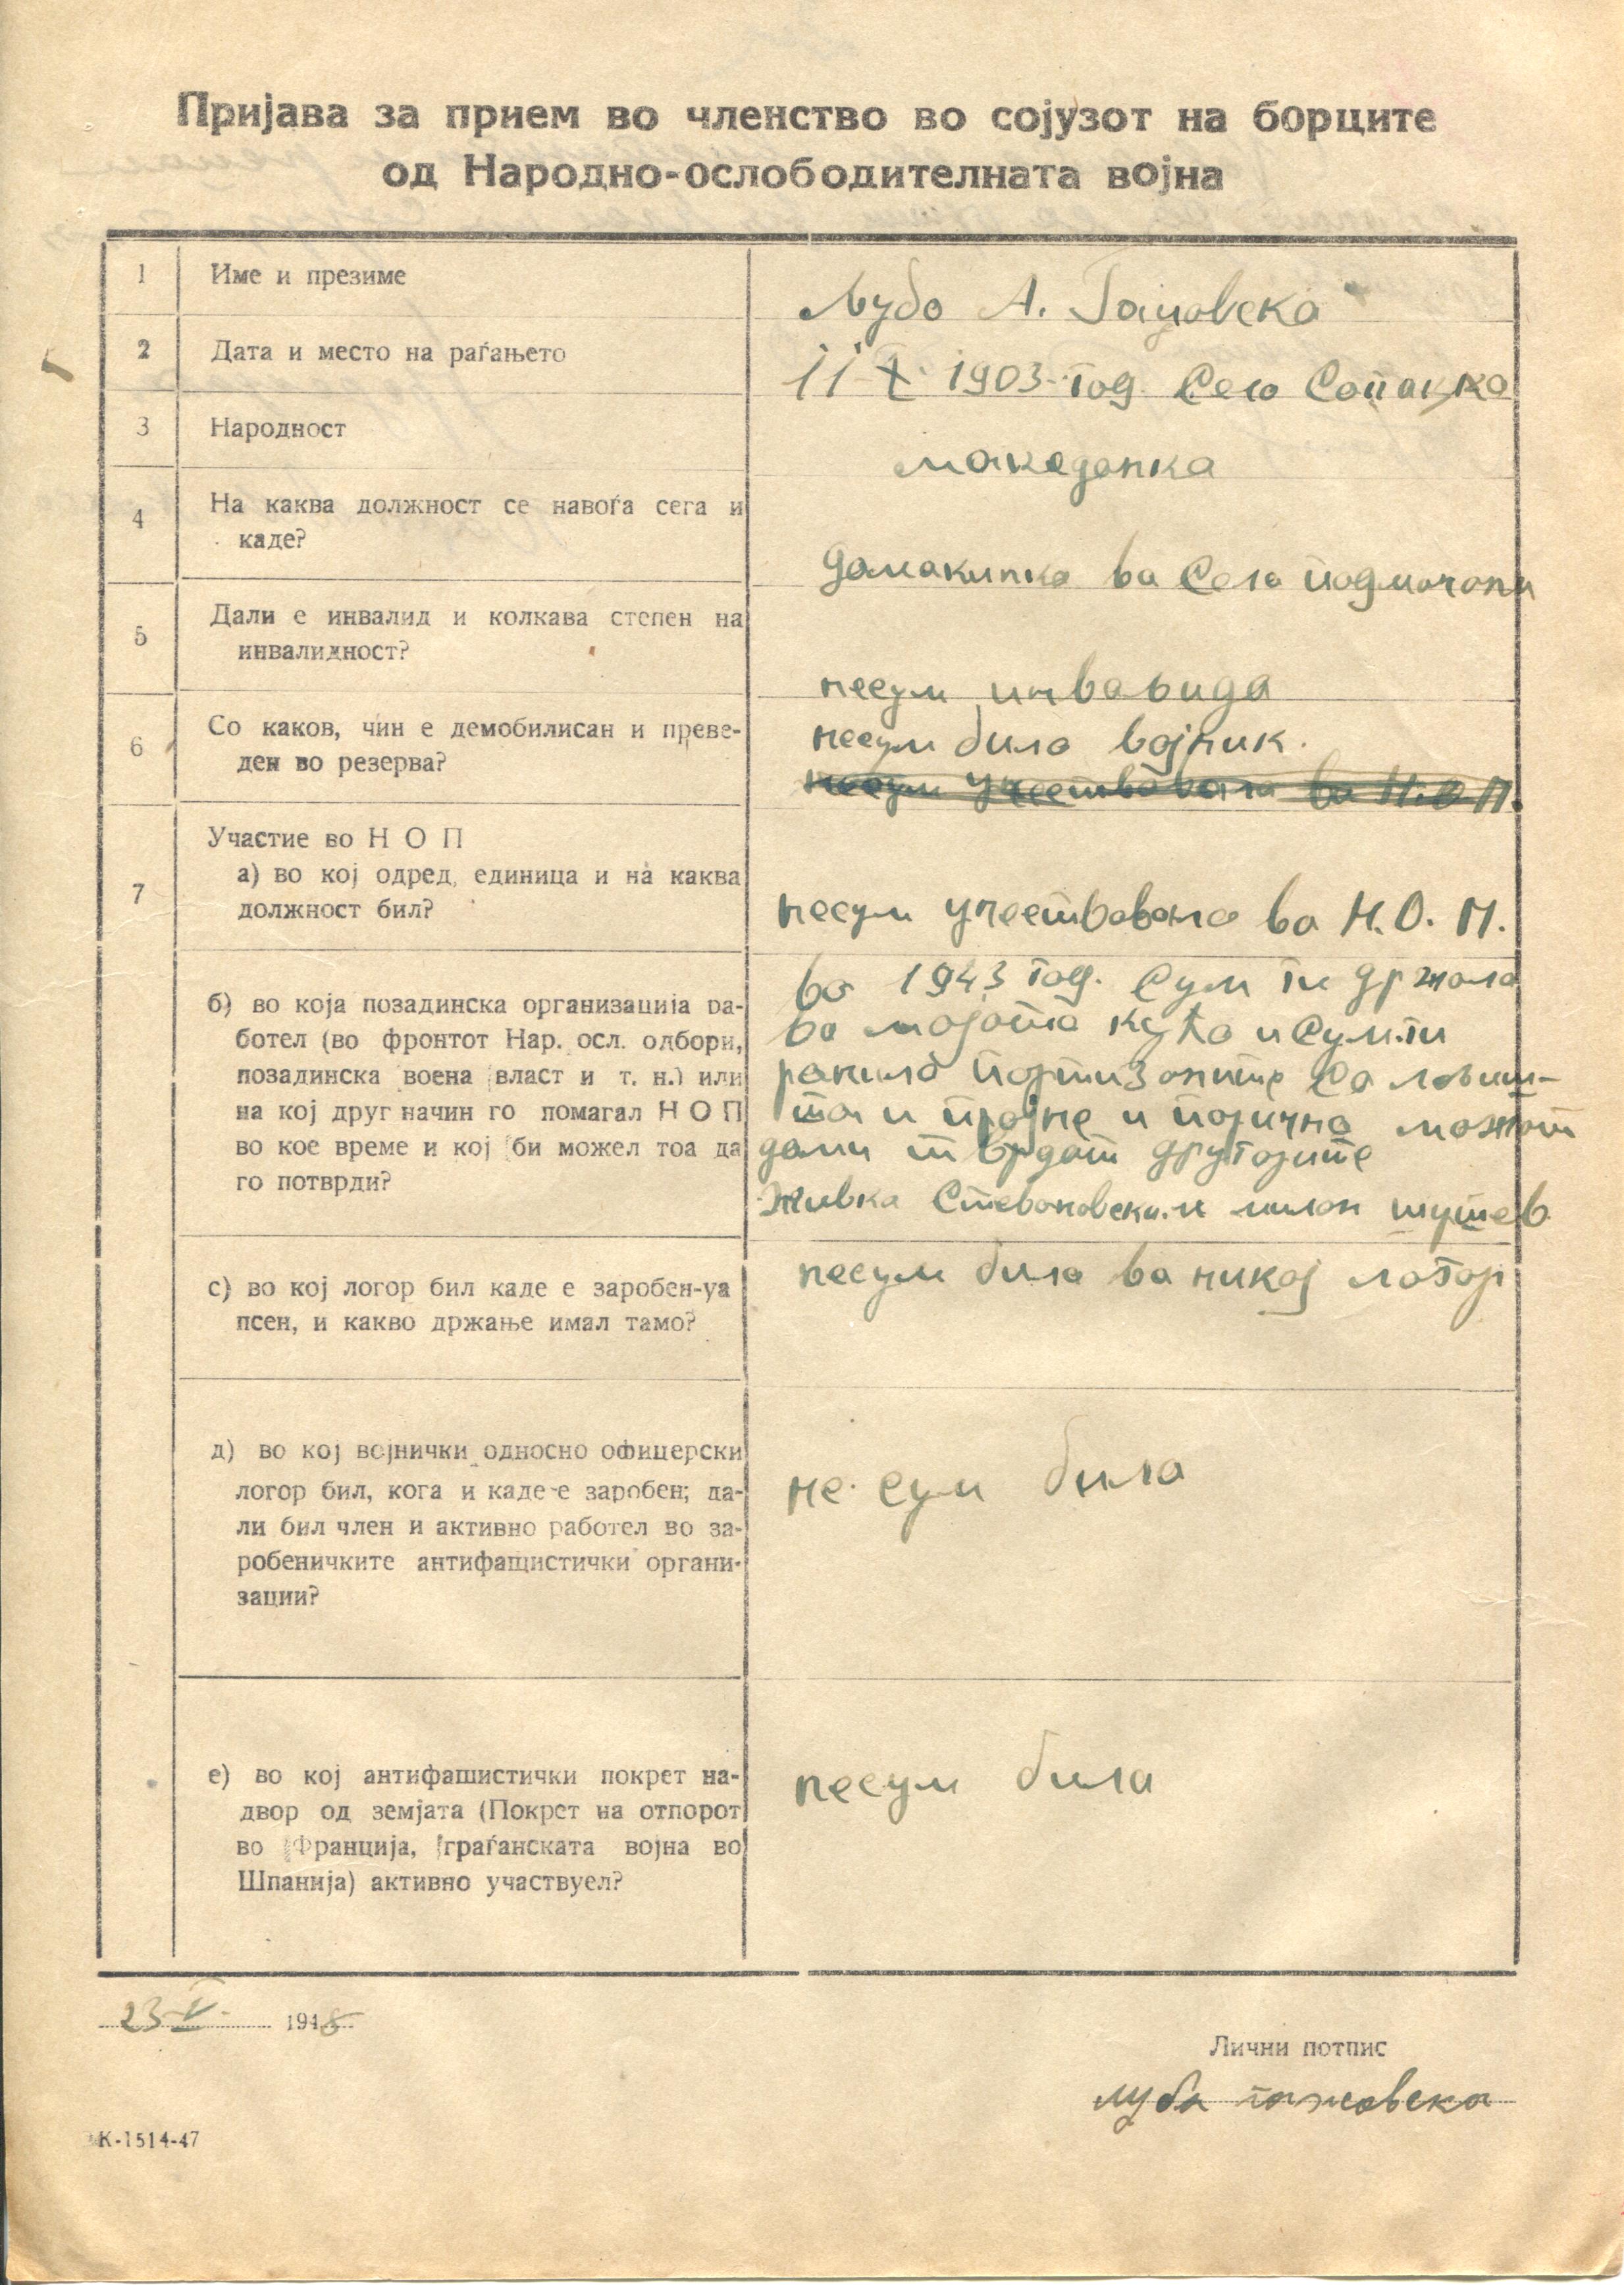 Пријава за прием во членство во сојузот на борците
од Народно-ослободителната војна
1 Име и презиме
Љубо А.
2 Дата и место на раѓањето
11 X 1903 год. Село
3 Народност
македонка
4 На каква должност се навоѓа сега и
каде?
домакинка во Село подмочани
5 Дали е инвалид и колкава степен на
инвалидност?
несум инваљида
6 Со каков, чин е демобилисан и преве-
ден во резерва?
несум била војник.
несум учествовала во Н.О.П.
7 Участие во Н О П
а) во кој одред, единица и на каква
должност бил?
несум учествовала во Н.О.П.
б) во која позадинска организација ра-
ботел (во фронтот Нар. осл. одбори,
позадинска воена власт и т. н.) или
на кој друг начин го помагал Н О П
во кое време и кој би можел тоа да
го потврди?
во 1943 год. Сум ги држала
во мојата куќа и Сум ги
ранила партизаните Со
и и можат
тврдат другарите
Живка Стевановски и милан шутев
с) во кој логор бил каде е заробен-уа
псен, и какво држање имал тамо?
несум била во никој логор
д) во кој војнички односно офицерски
логор бил, кога и каде е заробен; да-
ли бил член и активно работел во за-
робеничките антифашистички органи-
зации?
не сум била
е) во кој антифашистички покрет на-
двор од земјата (Покрет на отпорот
во Франција, граѓанската војна во
Шпанија) активно участвуел?
несум била
23 V 1948
Лични потпис
К-1514-47